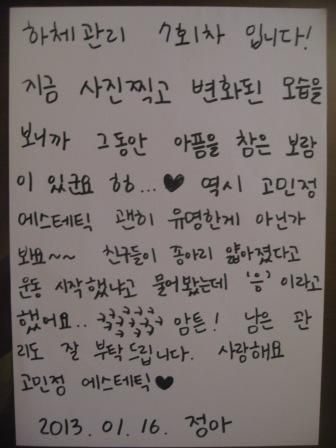 하체관리 7회차 입니다!
지금 사진찍고 변화된 모습을
보니까 그동안 아픔을 참은 보람
이 있군요 하하... ♥ 역시 고민정
에스테틱 괜히 유명한게 아닌가
봐요~~ 친구들이 종아리 얇아졌다고
운동 시작했냐고 물어봤는데 '응' 이라고
했어요.. ㅋㅋㅋㅋㅋㅋ 암튼! 남은 관
리도 잘 부탁드립니다. 사랑해요
고민정 에스테틱♥
2013. 01. 16. 정아